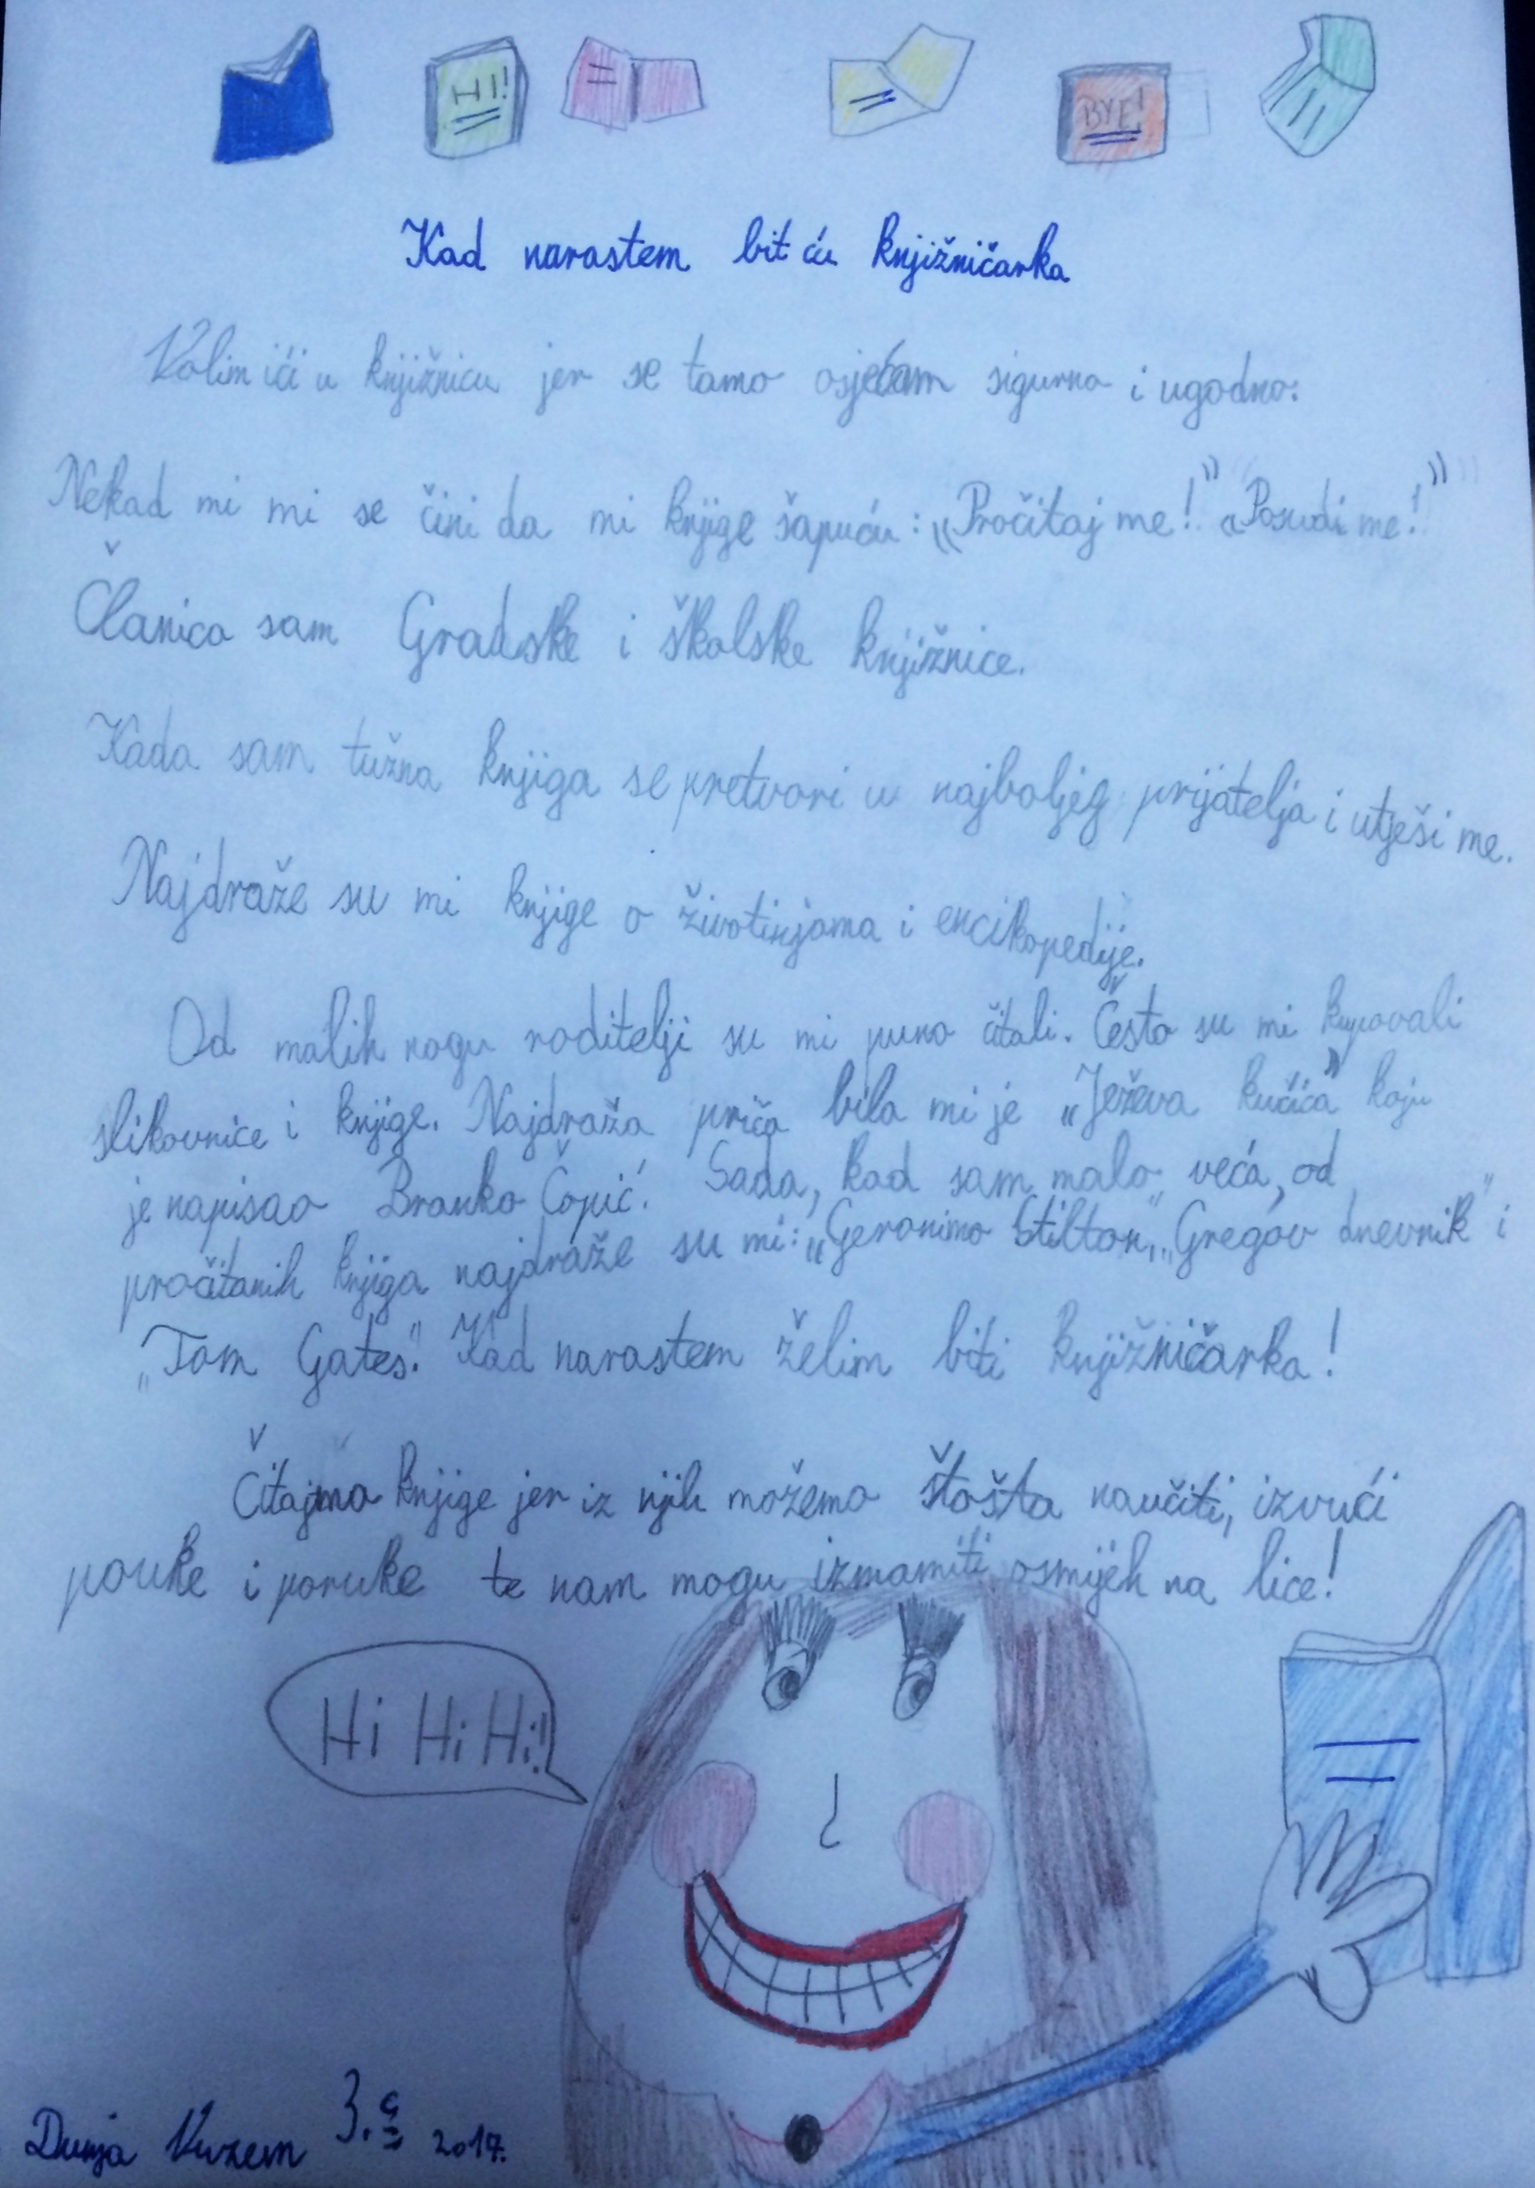 HI!
BYE!
Kad narastem bit ću knjižničarka
Volim ići u knjižnicu jer se tamo osjećam sigurno i ugodno.
Nekad mi mi se čini da mi knjige šapuću: „Pročitaj me!” „Posudi me!”
Članica sam Gradske i školske knjižnice.
Kada sam tužna knjiga se pretvori u najboljeg prijatelja i utješi me.
Najdraže su mi knjige o životinjama i encikopedije.
Od malih nogu roditelji su mi puno čitali. Često su mi kupovali
slikovnice i knjige. Najdraža priča bila mi je „Ježeva kućica” koju
je napisao Branko Ćopić. Sada, kad sam malo veća, od
pročitanih knjiga najdraže su mi: „Geronimo Stilton”, „Gregov dnevnik” i
„Tom Gates.” Kad narastem želim biti knjižničarka!
Čitajmo knjige jer iz njih možemo štošta naučiti, izvući
pouke i poruke te nam mogu izmamiti osmijeh na lice!
Hi Hi Hi!
Dunja 3. c 2017.